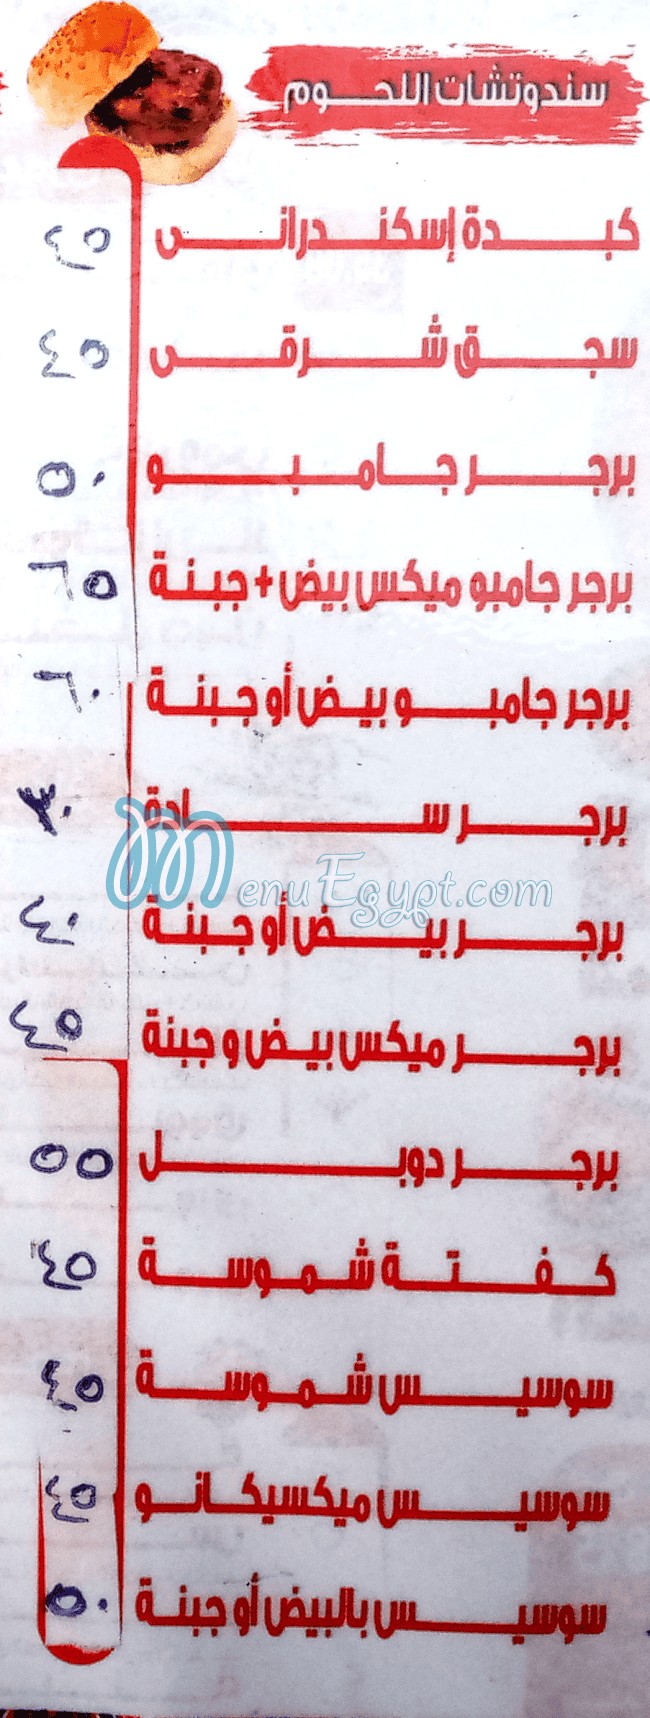 سندوتشات اللحوم
كبدة إسكندرانى ٤٥
سجق شرقى ٤٥
برجر جامبو ٥٠
برجر جامبو ميكس بيض + جبنة ٦٥
برجر جامبو بيض أو جبنة ٦٠
برجر سادة ٣٠
MenuEgypt.com
برجر بيض أو جبنة ٤٠
برجر ميكس بيض و جبنة ٤٥
برجر دوبل ٥٥
كفتة شموسة ٤٥
سوسيس شموسة ٤٥
سوسيس ميكسيكانو ٤٥
سوسيس بالبيض أو جبنة ٥٠